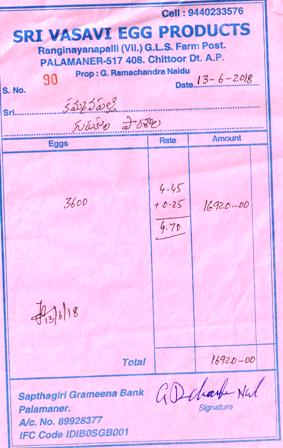 Cell : 9440233576
SRI VASAVI EGG PRODUCTS
Ranginayanapalli (Vil.) G.L.S. Farm Post.
PALAMANER-517 408. Chittoor Dt. A.P.
Prop : G. Ramachandra Naidu
S. No. 90 Date 13-6-2018
Sri
Eggs Rate Amount
3600 4.45 16920-00
+ 0.25
4.70
13/6/18
Total 16920-00
Sapthagiri Grameena Bank
Palamaner.
A/c. No. 89928377
IFC Code IDIB0SGB001
Signature